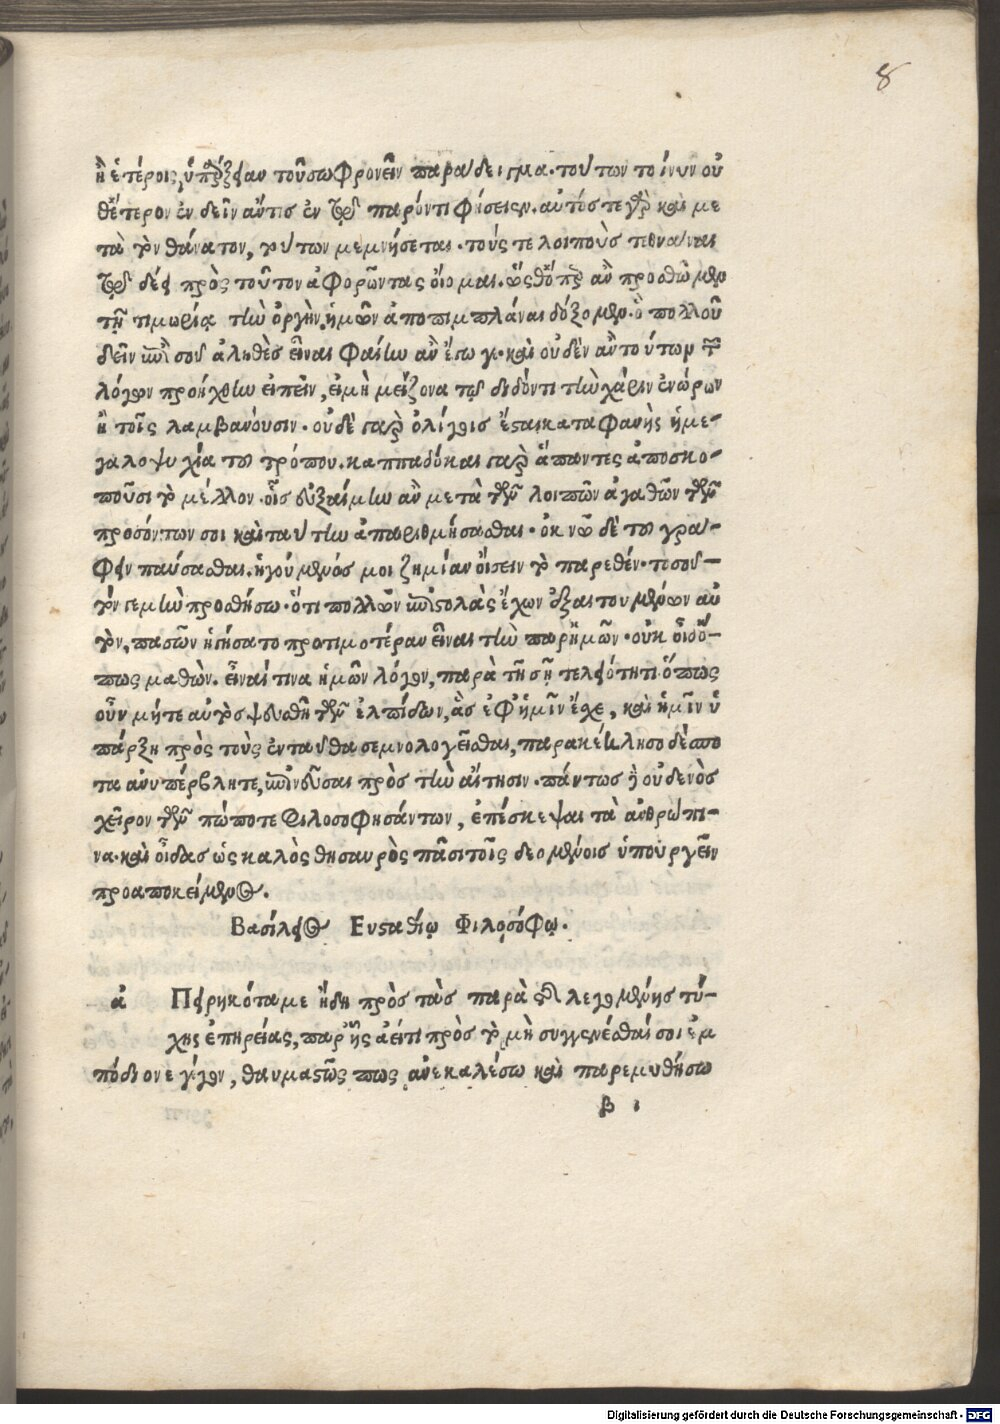 8
ἢ ἑτέροις, ὑπῆρξαν τοῦ σωφρονεῖν παράδειγμα. τούτων τοίνυν οὐ
θέτερον ἐνδεῖν ἄν τις ἐν τῷ παρόντι φήσειεν. αὐτός τε γὰρ καὶ με
τὰ τὸν θάνατον, τούτων μεμνήσεται. τούς τε λοιποὺς
δέει πρὸς τοῦτον ἀφορῶντας οἴομαι. ὥσθ' ὅπερ ἂν προσθῶμεν
τῇ τιμωρίᾳ τὴν ὀργὴν ἡμῶν ἀποπιμπλάναι δόξομεν. ὃ πολλοῦ
δεῖν ἐπὶ σοῦ ἀληθὲς εἶναι φαίην ἂν ἔγωγε. καὶ οὐδὲν ἂν τούτων τὸν
λόγον προήχθην εἰπεῖν, εἰ μὴ μείζονα τῷ διδόντι τὴν χάριν ἐνεώρων
ἢ τοῖς λαμβάνουσιν. οὐδὲ γὰρ ὀλίγοις ἔσται καταφανὴς ἡ με-
γαλοψυχία τοῦ τρόπου. καππαδόκαι γὰρ ἅπαντες ἀποσκο-
ποῦσι τὸ μέλλον. οἷς εὐξαίμην ἂν μετὰ τῶν λοιπῶν ἀγαθῶν τῶν
προσόντων σοι καὶ ταύτην ἀπαριθμήσασθαι. ὀκνῶ δὲ τοῦ γρά-
φειν παύσασθαι. ἡγούμενός μοι ζημίαν οἴσειν τὸ παρεθέν. τοσοῦ-
τόν γε μὴν προσθήσω. ὅτι πολλῶν ἐπιστολὰς ἔχων ἐξαιτουμένων αὐ
τὸν, πασῶν ἡγήσατο προτιμοτέραν εἶναι τὴν παρ' ἡμῶν. οὐκ οἶδ' ὅ-
πως μαθὼν. εἶναί τινα ἡμῶν λόγον, παρὰ τῇ σῇ τελειότητι. ὅπως
οὖν μήτε αὐτὸς ψευσθῇ τῶν ἐλπίδων, ἃς ἐφ' ἡμῖν ἔσχε, καὶ ἡμῖν ὑ
πάρξῃ πρὸς τοὺς ἐνταῦθα σεμνολογεῖσθαι, παρακέκλησο δέσπο
τα ἀνυπέρβλητε, ἐπινεῦσαι πρὸς τὴν αἴτησιν. πάντως δὲ οὐδενὸς
χεῖρον τῶν πώποτε φιλοσοφησάντων, ἐπέσκεψαι τὰ ἀνθρώπι-
να. καὶ οἶδας ὡς καλὸς θησαυρὸς πᾶσι τοῖς δεομένοις ὑπουργεῖν
προαποκείμενος.
Βασίλειος Ευσταθίῳ Φιλοσόφῳ.
ἀ Πειρηκότα με ἤδη πρὸς τὰς παρὰ τῆς λεγομένης τύ-
χης ἐπηρείας, παρ' ἧς ἀεί τι πρὸς τὸ μὴ συγγενέσθαί σοι ἐμ
πόδιον ἐγένον, θαυμαστῶς πως ἀνεκαλέσω καὶ παρεμυθήσω
β ι
Digitalisierung gefördert durch die Deutsche Forschungsgemeinschaft - DFG